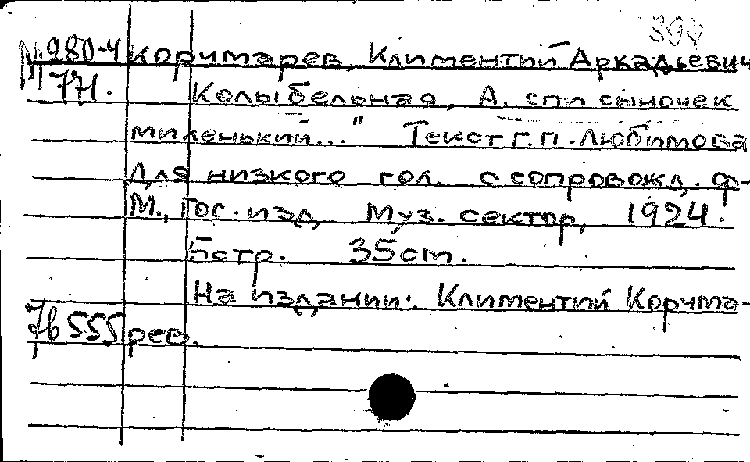 М980-4 Корчмарев, Климентий Аркадьевич
771. Колыбельная, А. спи сыночек
миленький..." Текст Г.П. Любимова
Для низкого гол. с сопровожд. ф-
М., Гос. изд. Муз. сектор, 1924.
5стр. 35ст.
На издании: Климентий Корчма-
76555 рев.